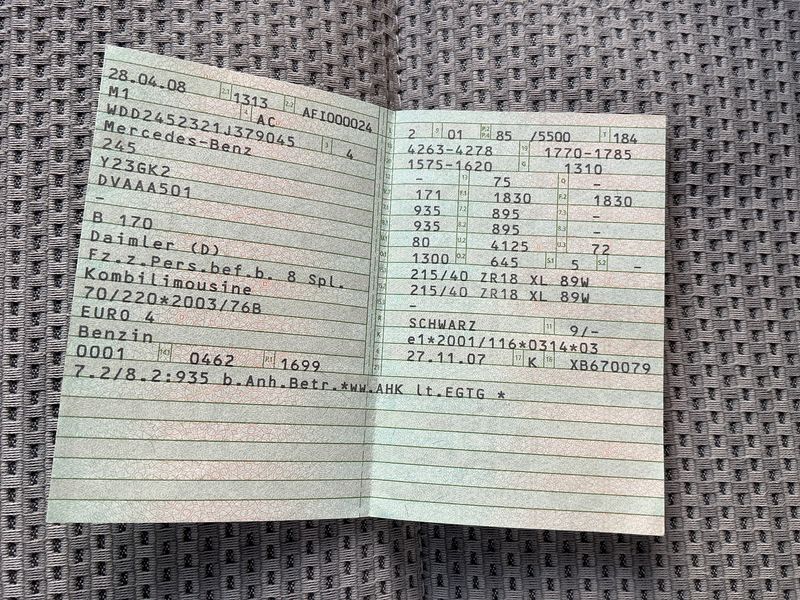 28.04.08 2.1 1313 2.2 AFI000024
M1 AC
WDD2452321J379045 3 4
Mercedes-Benz
245
Y23GK2
DVAAA501
–
B 170
Daimler (D)
Fz.z.Pers.bef.b. 8 Spl.
Kombilimousine
70/220*2003/76B
EURO 4
Benzin
0001 14.1 0462 P.1 1699
7.2/8.2:935 b.Anh.Betr.*ww.AHK lt.EGTG *
2 9 01 P.2 P.4 85 /5500 T 184
4263-4278 19 1770-1785
1575-1620 G 1310
– 75 –
171 F.1 1830 F.2 1830
935 7.2 895 7.3 –
935 8.2 895 8.3 –
80 U.2 4125 U.3 72
1300 O.2 645 S.1 5 S.2 –
215/40 ZR18 XL 89W
215/40 ZR18 XL 89W
–
SCHWARZ 11 9/–
e1*2001/116*0314*03
27.11.07 17 K 16 XB670079